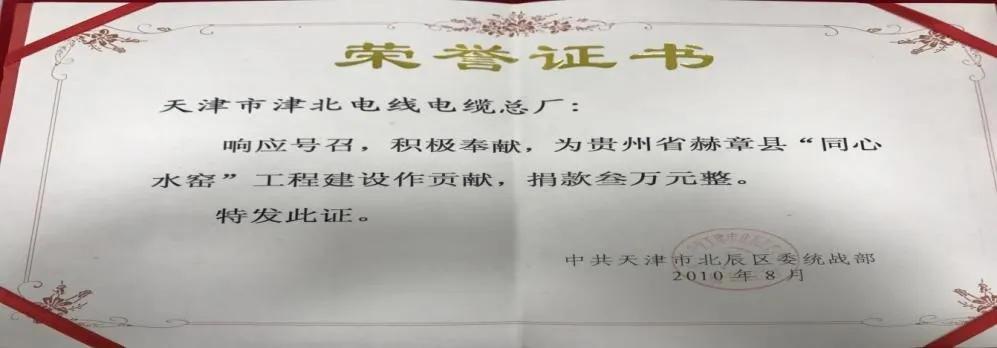 荣誉证书
天津市津北电线电缆总厂：
响应号召，积极奉献，为贵州省赫章县“同心
水窑”工程建设作贡献，捐款叁万元整。
特发此证。
中共天津市北辰区委统战部
2010年8月